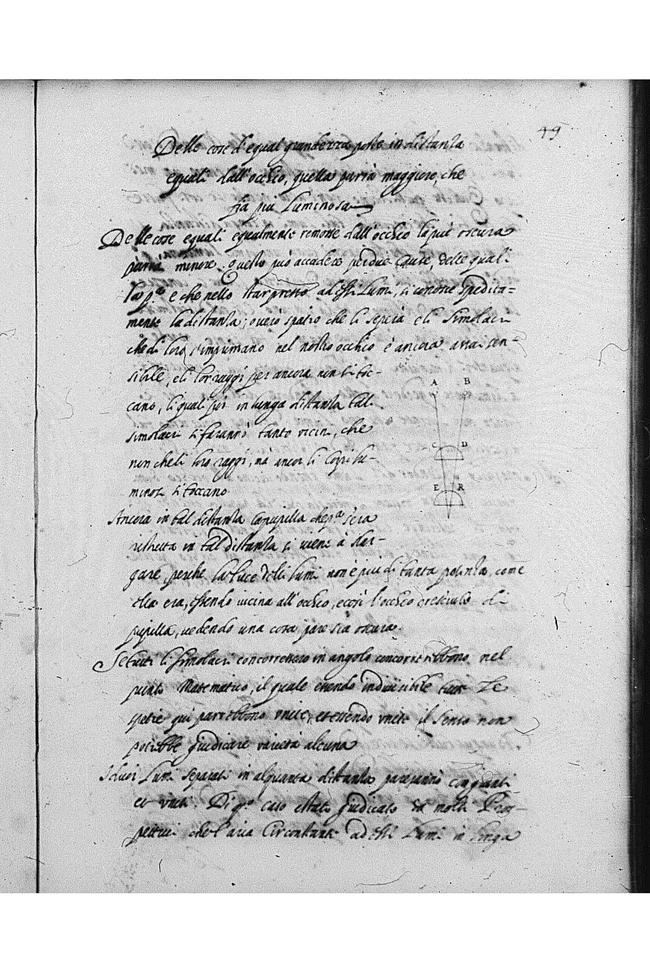 49
Delle cose d'equal grandezza poste in distantia
equali dall'occhio, quella parrà maggiore, che
sia più Luminosa
Delle cose equali equalmente remosse dall'occhio la piu oscura
parrà minore. Questo può accadere per due cause, delle quali
la p.ª e che nello star presso alesti Lumi, si conosce spedita-
mente la distantia; overo spatio che li separa e li Simolacri
che di loro s'imprimano nel nostro occhio è ancora assai sen-
sibile, e li lor raggi per ancora non si toc-
cano, li quali poi in lunga distantia tal
simolacri si faranno tanto vicini, che
non che li loro raggi, mà ancor li Corpi lu-
minosi si toccano
A B
C D
E R
Ancora in tal distantia la pupilla che p.ª s'era
ristretta in tal distantia si viene à slar-
gare, perche la luce delli lumi non è piu di tanta potentia, come
ella era, essendo vicina all'occhio, e così l'occhio cresciuto di
pupilla, vedendo una cosa pare sia oscura.
Se tutti li simolaci concorressero in angolo concorrerebbono nel
punto Matematico, il quale essendo indivisibile tutte Le
spetie qui parrebbono unite, et essendo unite il senso non
potrebbe giudicare varietà alcuna
Lumi separati in alquanta distantia parerano congionti
et uniti. Di q.º caso estato giudicato da molti Pros-
pettivi che l'aria Circonstante ad essi Lumi in lunga